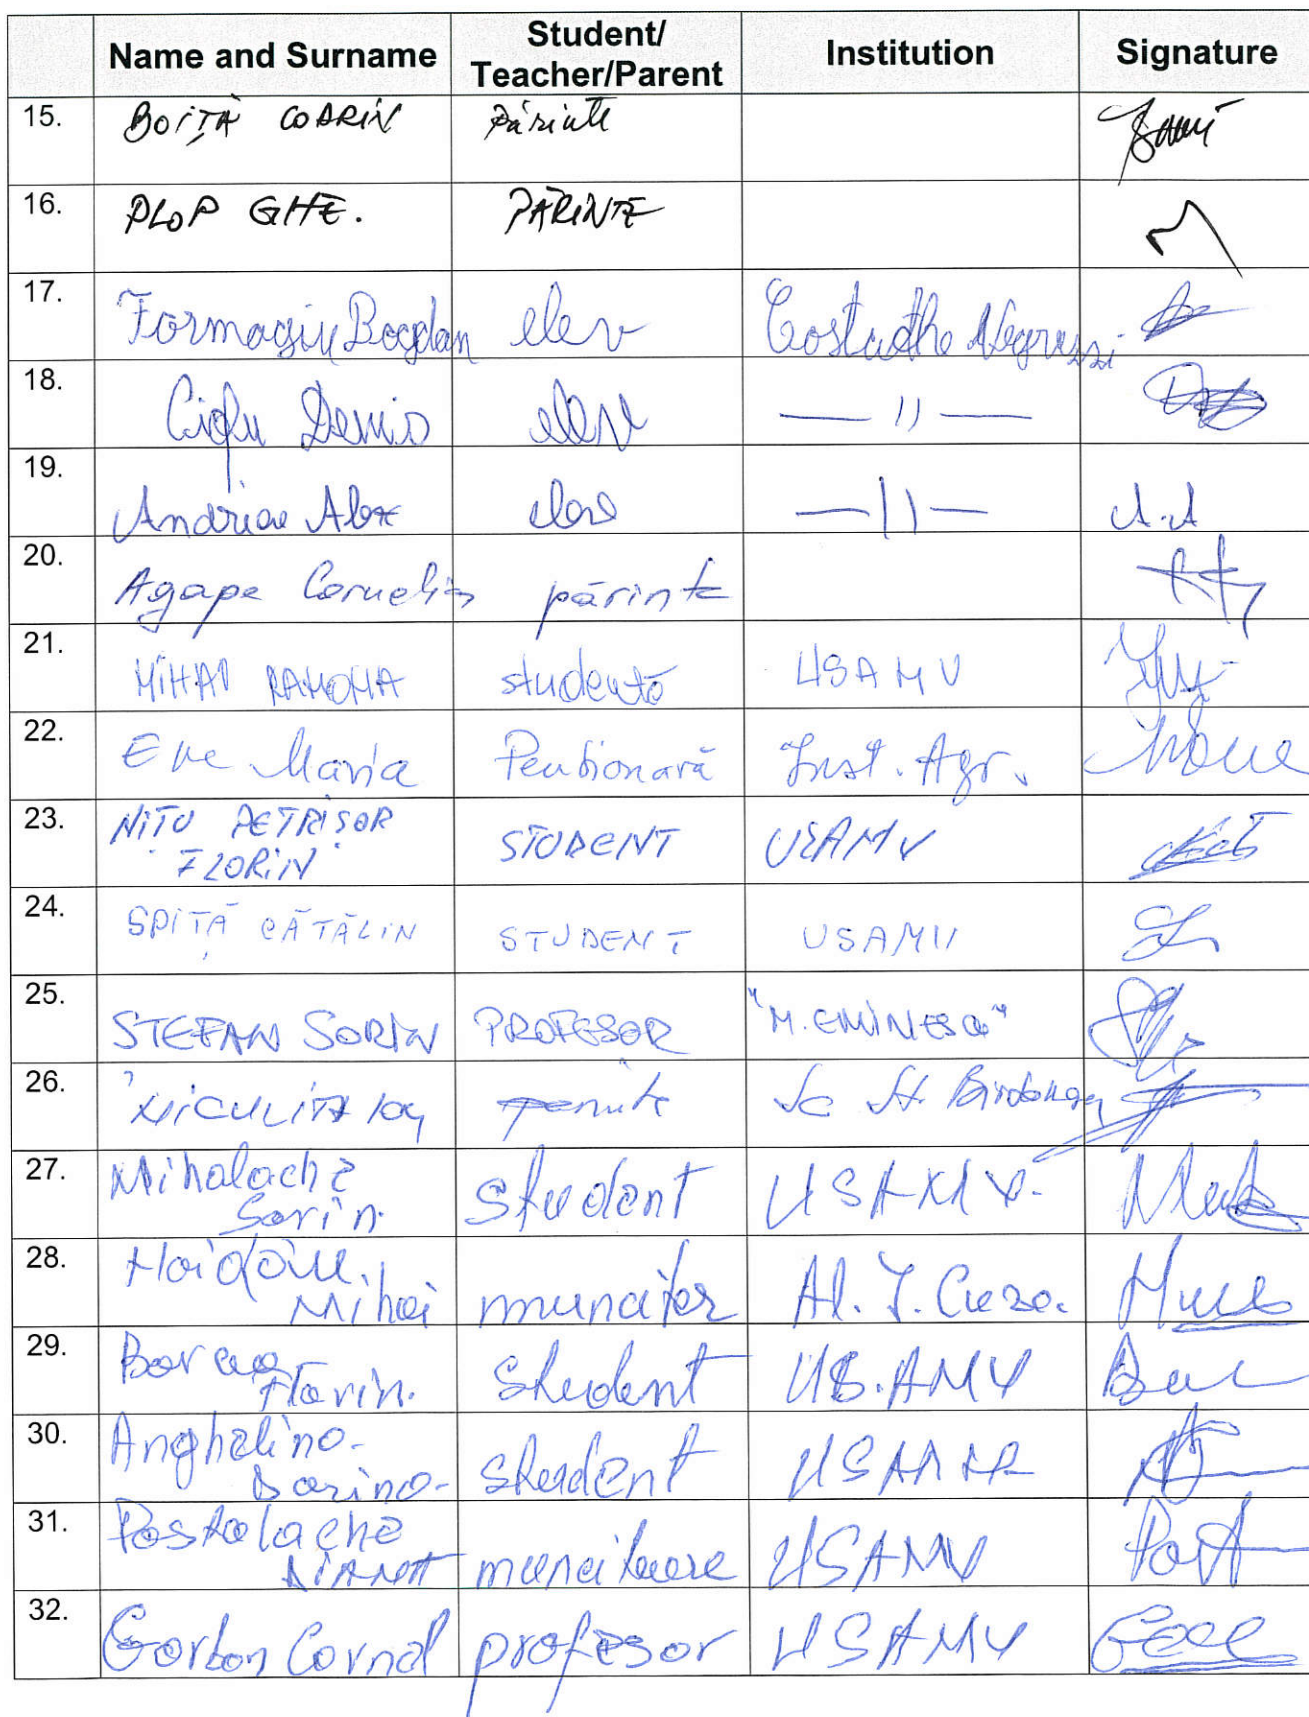 Name and Surname Student/ Teacher/Parent Institution Signature
15. BOIȚĂ CODRIN Părinte
16. PLOP GHE. PĂRINTE
17. Formagiu Bogdan elev Costache Negruzzi
18. Ciofu Denis elev — 〃 —
19. Andriae Alex elev — 〃 — A.A
20. Agape Cornelia părinte
21. MIHAI RAMONA studentă USAMV
22. Ene Maria Pensionară Inst. Agr.
23. NIȚU PETRIȘOR
FLORIN STUDENT USAMV
24. SPIȚĂ CĂTĂLIN STUDENT USAMV
25. STEFAN SORIN PROFESOR "M. EMINESCU"
26. NICULIȚĂ Sc St.
27. Mihalache
Sorin. student USAMV.
28. Mihai muncitor Al. I. Cuza.
29. Florin. student US.AMV
30. Anghelina-
Darina- student
31. Postolache
DIANA muncitoare USAMV
32. Gorban Cornel profesor USAMV